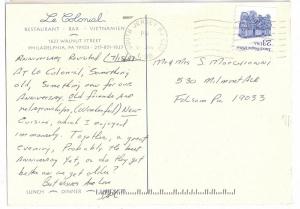 Le Colonial
RESTAURANT · BAR · VIETNAMIEN
1623 WALNUT STREET
PHILADELPHIA, PA 19103 · 215-851-1623
Anniversary Revisited
At Le Colonial, Something
old, Something new for our
Anniversary. Old friends and
relationships, (Wonderful) New
Cuisine, which I enjoyed
immensely. Together, a great
evening, Probably the best
Anniversary yet, or do they get
better as we get older?
But Always Are Love
LUNCH · DINNER
USA
Mr & Mrs S
530 Milmont Ave
Folsom Pa 19033